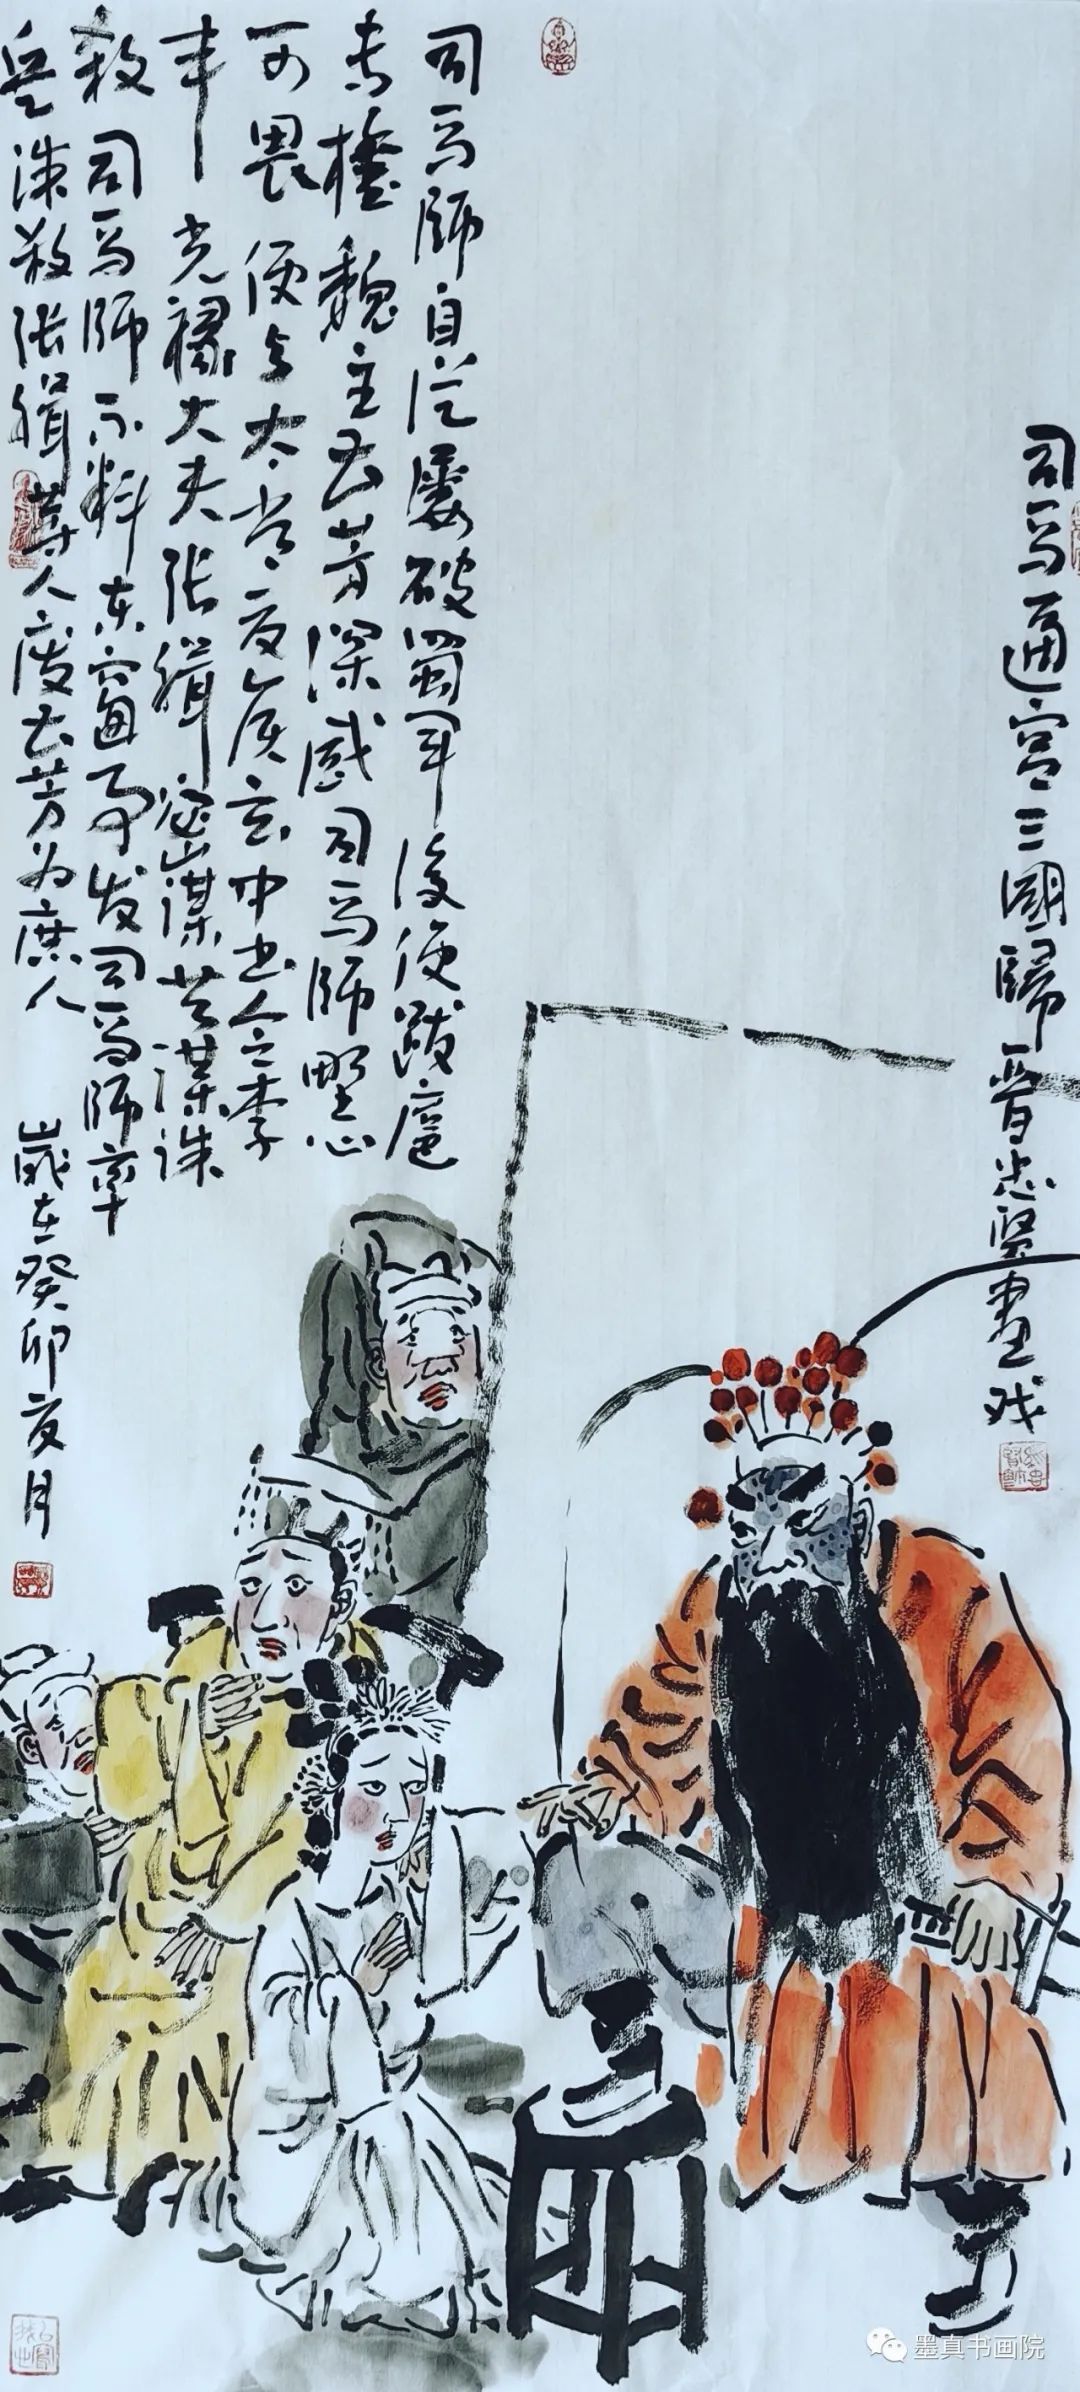 司马逼宫三國歸晋忠贤画戏
司马师自从屡破蜀军后便跋扈
专権魏主曹芳深感司马师野心
可畏便与太常夏侯玄中书令李
丰光禄大夫张缉密谋共谋诛
杀司马师不料东窗事发司马师率
兵诛杀张缉等人废曹芳为庶人
歲在癸卯夏月
墨真书画院